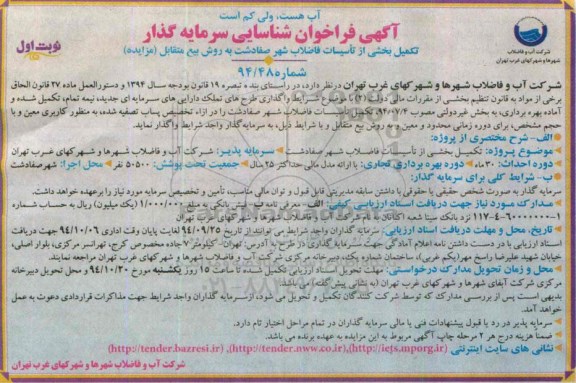 آب هست، ولی کم است
آگهی فراخوان شناسایی سرمایه گذار
نوبت اول
تکمیل بخشی از تأسیسات فاضلاب شهر صفادشت به روش بیع متقابل (مزایده)
شماره ۹۴/۴۸
شرکت آب و فاضلاب
شهرها و شهرکهای غرب تهران
شرکت آب و فاضلاب شهرها و شهرکهای غرب تهران درنظر دارد، در راستای بند ه تبصره ۱۹ قانون بودجه سال ۱۳۹۴ و دستورالعمل ماده ۲۷ قانون الحاق
برخی از مواد به قانون تنظیم بخشی از مقررات مالی دولت (۲)، موضوع شرایط واگذاری طرح های تملک دارایی های سرمایه ای جدید، نیمه تمام، تکمیل شده و
آماده بهره برداری، به بخش غیردولتی مصوب ۹۴/۰۷/۴ تکمیل تاسیسات فاضلاب شهر صفادشت را در ازاء تخصیص پساب تصفیه شده، به منظور کاربری معین و با
حجم مشخص، برای دوره زمانی محدود و معین، به روش بیع متقابل و با شرایط ذیل، به سرمایه گذار واجد شرایط واگذار نماید.
الف- شرح مختصری از پروژه:
موضوع پروژه: تکمیل بخشی از تأسیسات فاضلاب شهر صفادشت سرمایه پذیر: شرکت آب و فاضلاب شهرها و شهرکهای غرب تهران
دوره احداث: ۳۰ ماه دوره بهره برداری تجاری: با ارائه مدل مالی حداکثر ۲۵ سال جمعیت تحت پوشش: ۵۰۵۰۰ نفر محل اجرا: شهر صفادشت
ب- شرائط کلی برای سرمایه گذار:
سرمایه گذار به صورت شخص حقیقی یا حقوقی با داشتن سابقه مدیریتی قابل قبول و توان مالی مناسب، تأمین و تخصیص سرمایه مورد نیاز را برعهده خواهد داشت.
مدارک مورد نیاز جهت دریافت اسناد ارزیابی کیفی: الف- معرفی نامه ب- فیش بانکی به مبلغ ۱/۰۰۰/۰۰۰ (یک میلیون) ریال به حساب شماره
۱۱۷-۴-۶۰۰۰۰۰۰۰-۱ نزد بانک سینا شعبه
تاریخ، محل و مهلت دریافت اسناد ارزیابی: سرمایه گذاران واجد شرایط می توانند از تاریخ ۹۴/۰۹/۲۵ لغایت پایان وقت اداری ۹۴/۱۰/۰۶ جهت دریافت
اسناد ارزیابی با در دست داشتن نامه اعلام آمادگی جهت سرمایه گذاری در طرح به آدرس: تهران- کیلومتر ۷ جاده مخصوص کرج، تهرانسر مرکزی، بلوار اصلی،
خیابان شهید علیرضا راسخ مهر(یکم غربی)، ساختمان شماره یک، دبیرخانه مرکزی شرکت آب و فاضلاب شهرها و شهرکهای غرب تهران مراجعه نمایند.
محل و زمان تحویل مدارک درخواستی: مهلت تحویل اسناد ارزیابی تکمیل شده تا ساعت ۱۵ روز یکشنبه مورخ ۹۴/۱۰/۲۰ و محل تحویل دبیرخانه
مرکزی شرکت آبفای شهرها و شهرکهای غرب تهران (به نشانی پیش گفت) می باشد.
بدیهی است پس از بررسی مدارکی که توسط شرکت کنندگان تکمیل و تحویل می شود، ازسرمایه گذاران واجد شرایط جهت مذاکرات قراردادی دعوت به عمل
خواهد آمد.
سرمایه پذیر در رد یا قبول پیشنهادات فنی یا مالی سرمایه گذاران در تمام مراحل اختیار تام دارد.
ضمنا هزینه درج هر ۲ مرحله چاپ آگهی مربوط به این مزایده به عهده برنده می باشد.
نشانی های سایت اینترنتی (http://iets.mporg.ir)، (http://tender.nww.co.ir)، (http://tender.bazresi.ir)
شرکت آب و فاضلاب شهرها و شهرکهای غرب تهران